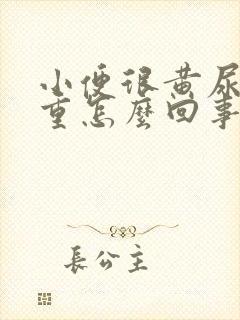 小便很黄尿
重怎麼回事
長公主